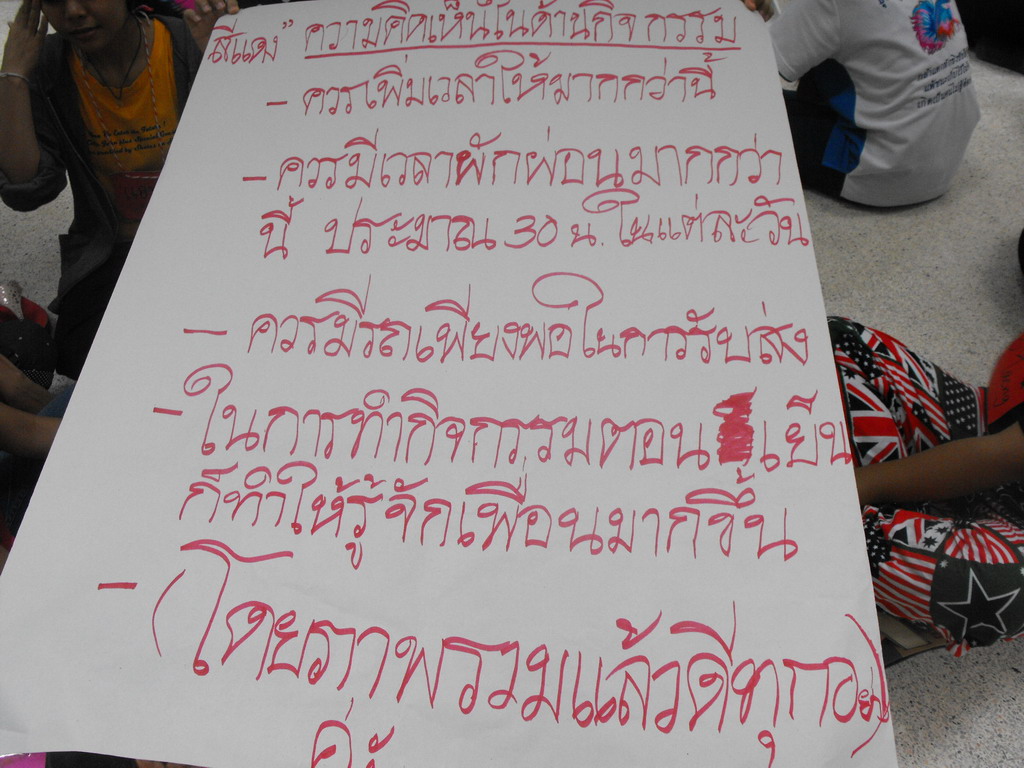 สีแดง" ความคิดเห็นในด้านกิจกรรม
- ควรเพิ่มเวลาให้มากกว่านี้
- ควรมีเวลาพักผ่อนมากกว่า
นี้ ประมาณ 30 น. ในแต่ละวัน
- ควรมีรถเพียงพอในการรับส่ง
- ในการทำกิจกรรมตอนเย็น
ก็ทำให้รู้จักเพื่อนมากขึ้น
- (โดยภาพรวมแล้วดีทุกอย่าง)